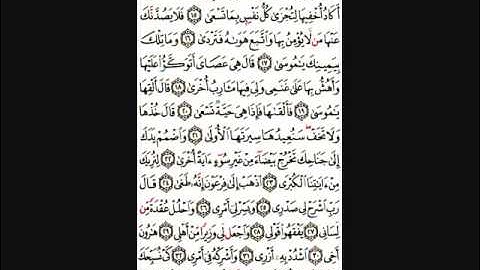 أَكَادُ أُخْفِيهَا لِتُجْزَىٰ كُلُّ نَفْسٍ بِمَا تَسْعَىٰ ١٥ فَلَا يَصُدَّنَّكَ
عَنْهَا مَن لَّا يُؤْمِنُ بِهَا وَاتَّبَعَ هَوَاهُ فَتَرْدَىٰ ١٦ وَمَا تِلْكَ
بِيَمِينِكَ يَامُوسَىٰ ١٧ قَالَ هِيَ عَصَايَ أَتَوَكَّأُ عَلَيْهَا
وَأَهُشُّ بِهَا عَلَىٰ غَنَمِي وَلِيَ فِيهَا مَآرِبُ أُخْرَىٰ ١٨ قَالَ أَلْقِهَا
يَامُوسَىٰ ١٩ فَأَلْقَاهَا فَإِذَا هِيَ حَيَّةٌ تَسْعَىٰ ٢٠ قَالَ خُذْهَا
وَلَا تَخَفْ سَنُعِيدُهَا سِيرَتَهَا الْأُولَىٰ ٢١ وَاضْمُمْ يَدَكَ
إِلَىٰ جَنَاحِكَ تَخْرُجْ بَيْضَاءَ مِنْ غَيْرِ سُوءٍ ءَايَةً أُخْرَىٰ ٢٢ لِنُرِيَكَ
مِنْ ءَايَاتِنَا الْكُبْرَىٰ ٢٣ اذْهَبْ إِلَىٰ فِرْعَوْنَ إِنَّهُ طَغَىٰ ٢٤ قَالَ
رَبِّ اشْرَحْ لِي صَدْرِي ٢٥ وَيَسِّرْ لِي أَمْرِي ٢٦ وَاحْلُلْ عُقْدَةً مِّن
لِّسَانِي ٢٧ يَفْقَهُوا قَوْلِي ٢٨ وَاجْعَل لِّي وَزِيرًا مِّنْ أَهْلِي ٢٩ هَارُونَ
أَخِي ٣٠ اشْدُدْ بِهِ أَزْرِي ٣١ وَأَشْرِكْهُ فِي أَمْرِي ٣٢ كَيْ نُسَبِّحَكَ